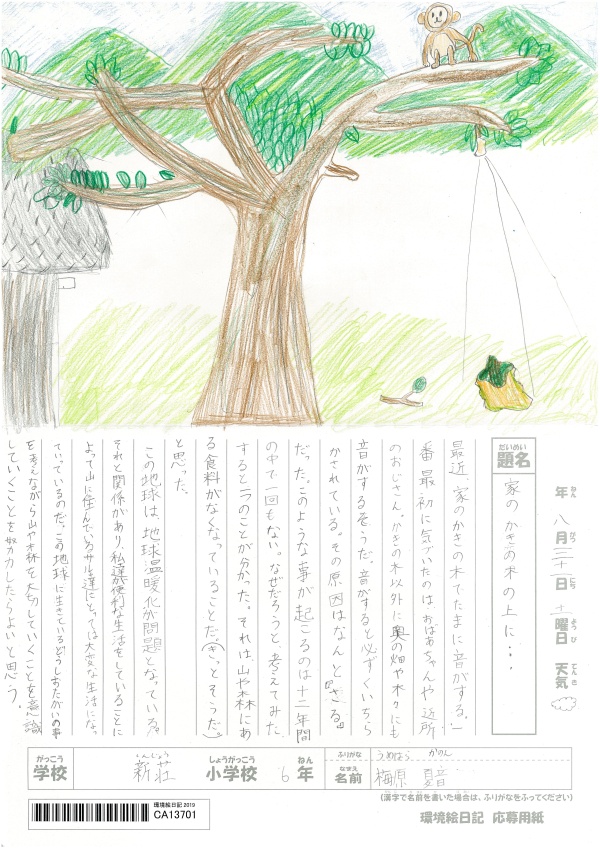 年 八月三十一日 土曜日 天気
ねん がつ にち ようび てんき
だいめい
題名
家のかきの木の上に…
最近、家のかきの木でたまに音がする。一
番最初に気づいたのは、おばあちゃんや近所
のおじさん。かきの木以外に奥の畑や木々にも
音がするそうだ。音がすると必ずくいちら
かされている。その原因はなんと『さる。』
だった。このような事が起こるのは十二年間
の中で一回もない。なぜだろうと考えてみた。
すると一つのことが分かった。それは、山や森にあ
る食料がなくなっていることだ。(きっとそうだ)
と思った。
この地球は、地球温暖化が問題となっている。
それと関係があり、私達が便利な生活をしていることに
よって山に住んでいるサル達にとっては大変な生活にな
っていっているのだ。この地球に生きているどうしおたがいの事
を考えながら山や森を大切にしていくことを意識
していくことを努力したらよいと思う。
がっこう しんじょう しょうがっこう ねん
学校 新荘 小学校 6年
ふりがな うめはら かのん
なまえ
名前 梅原 夏音
(漢字で名前を書いた場合は、ふりがなをふってください)
環境絵日記 2019
CA13701
環境絵日記 応募用紙